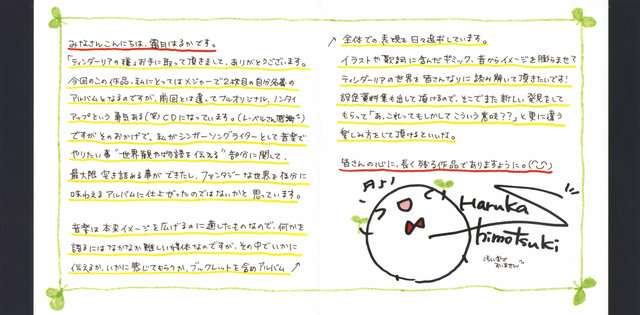 みなさんこんにちは、霜月はるかです。
「ティンダーリアの種」お手に取って頂きまして、ありがとうございます。
今回のこの作品、私にとってはメジャーで2枚目の自分名義の
アルバムとなるのですが、前回とは違ってフルオリジナル、ノンタイ
アップという勇気ある(笑)CDになっています。(レーベルさん感謝!)
ですがそのおかげで、私がシンガーソングライターとして音楽で
やりたい事"世界観や物語を伝える"部分に関して、
最大限突き詰める事ができたし、ファンタジーな世界を存分に
味わえるアルバムに仕上がったのではないかと思っています。
音楽は本来イメージを広げるのに適したものなので、何かを
語るにはなかなか難しい媒体なのですが、その中でいかに
伝えるか、いかに感じてもらうか、ブックレットを含めアルバム
全体での表現を日々追求しています。
イラストや歌詞に含んだギミック、音からイメージを膨らませて
ティンダーリアの世界を皆さんなりに読み解いて頂きたいです!
設定資料集も出して頂けるので、そこでまた新しい発見をして
もらって「あ、これってもしかしてこういう意味??」と更に違う
楽しみ方をして頂けるといいな。
皆さんの心に、長く残る作品でありますように。
Haruka
Shimotsuki